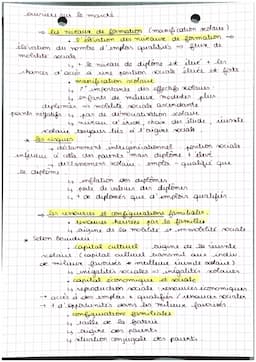 → les niveaux de formation (massification scolaire)
• L'élévation des niveaux de formation →
élévation du nombre d'emplois qualifiés → flux de
mobilité sociale
↳ + le niveau de diplôme est élevé + les
chances d'accès à une position sociale élevée est forte
• massification scolaire
↳ importante des effectifs scolaires
↳ enfants de milieux modestes plus
diplômés → mobilité sociale ascendante
points négatifs ↳ pas de démocratisation scolaire
↳ niveau de choix des études, réussite
scolaire toujours liés à l'origine sociale
• les risques
• déclassement intergénérationnel : position sociale
inférieure à celle des parents mais diplôme + élevé
• déclassement scolaire : emploi - qualifié que
le diplôme
↳ inflation des diplômes
↳ perte de valeur des diplômes
↳ + de diplômés que d'emplois qualifiés
→ les ressources et configurations familiales
• ressources héritées par la famille
↳ origine de la mobilité et immobilité sociale
• Selon Bourdieu
• capital culturel : origine de la réussite
scolaire (capital culturel transmis aux
milieux favorisés → meilleure réussite scolaire)
↳ inégalités sociales → inégalités scolaires
• capital économique et sociale
↳ reproduction sociale : ressources économiques
→ accès à des emplois + qualifiés / réseaux sociaux
→ + d'opportunités dans les milieux favorisés
• configurations familiales
↳ taille de la fratrie
↳ origine des parents
↳ situation conjugale des parents